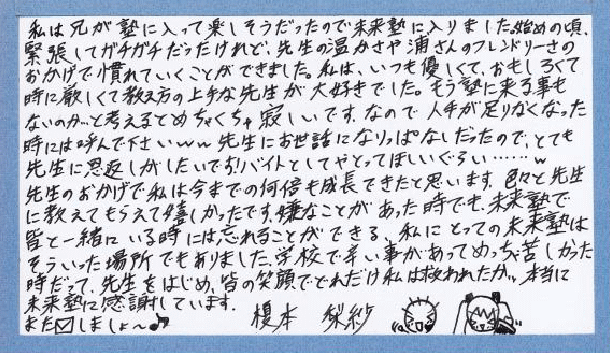 私は兄が塾に入って楽しそうだったので未来塾に入りました。始めの頃、
緊張してガチガチだったけれど、先生の温かさや浦さんのフレンドリーさの
おかげで慣れていくことができました。私は、いつも優しくて、おもしろくて
時に厳しくて教え方の上手な先生が大好きでした。もう塾に来る事も
ないのか…と考えるとめちゃくちゃ寂しいです。なので人手が足りなくなった
時には呼んで下さいww 先生にお世話になりっぱなしだったので、とても
先生に恩返しがしたいです!バイトとしてやとってほしいぐらい……w
先生のおかげで私は今までの何倍も成長できたと思います。色々と先生
に教えてもらえて嬉しかったです。嫌なことがあった時でも、未来塾で
皆と一緒にいる時には忘れることができる、私にとっての未来塾は
そういった場所でもありました。学校で辛い事があってめっちゃ苦しかった
時だって、先生をはじめ、皆の笑顔でどれだけ私は救われたか…本当に
未来塾に感謝しています。
また☑しましょ〜♪ 榎本 梨紗